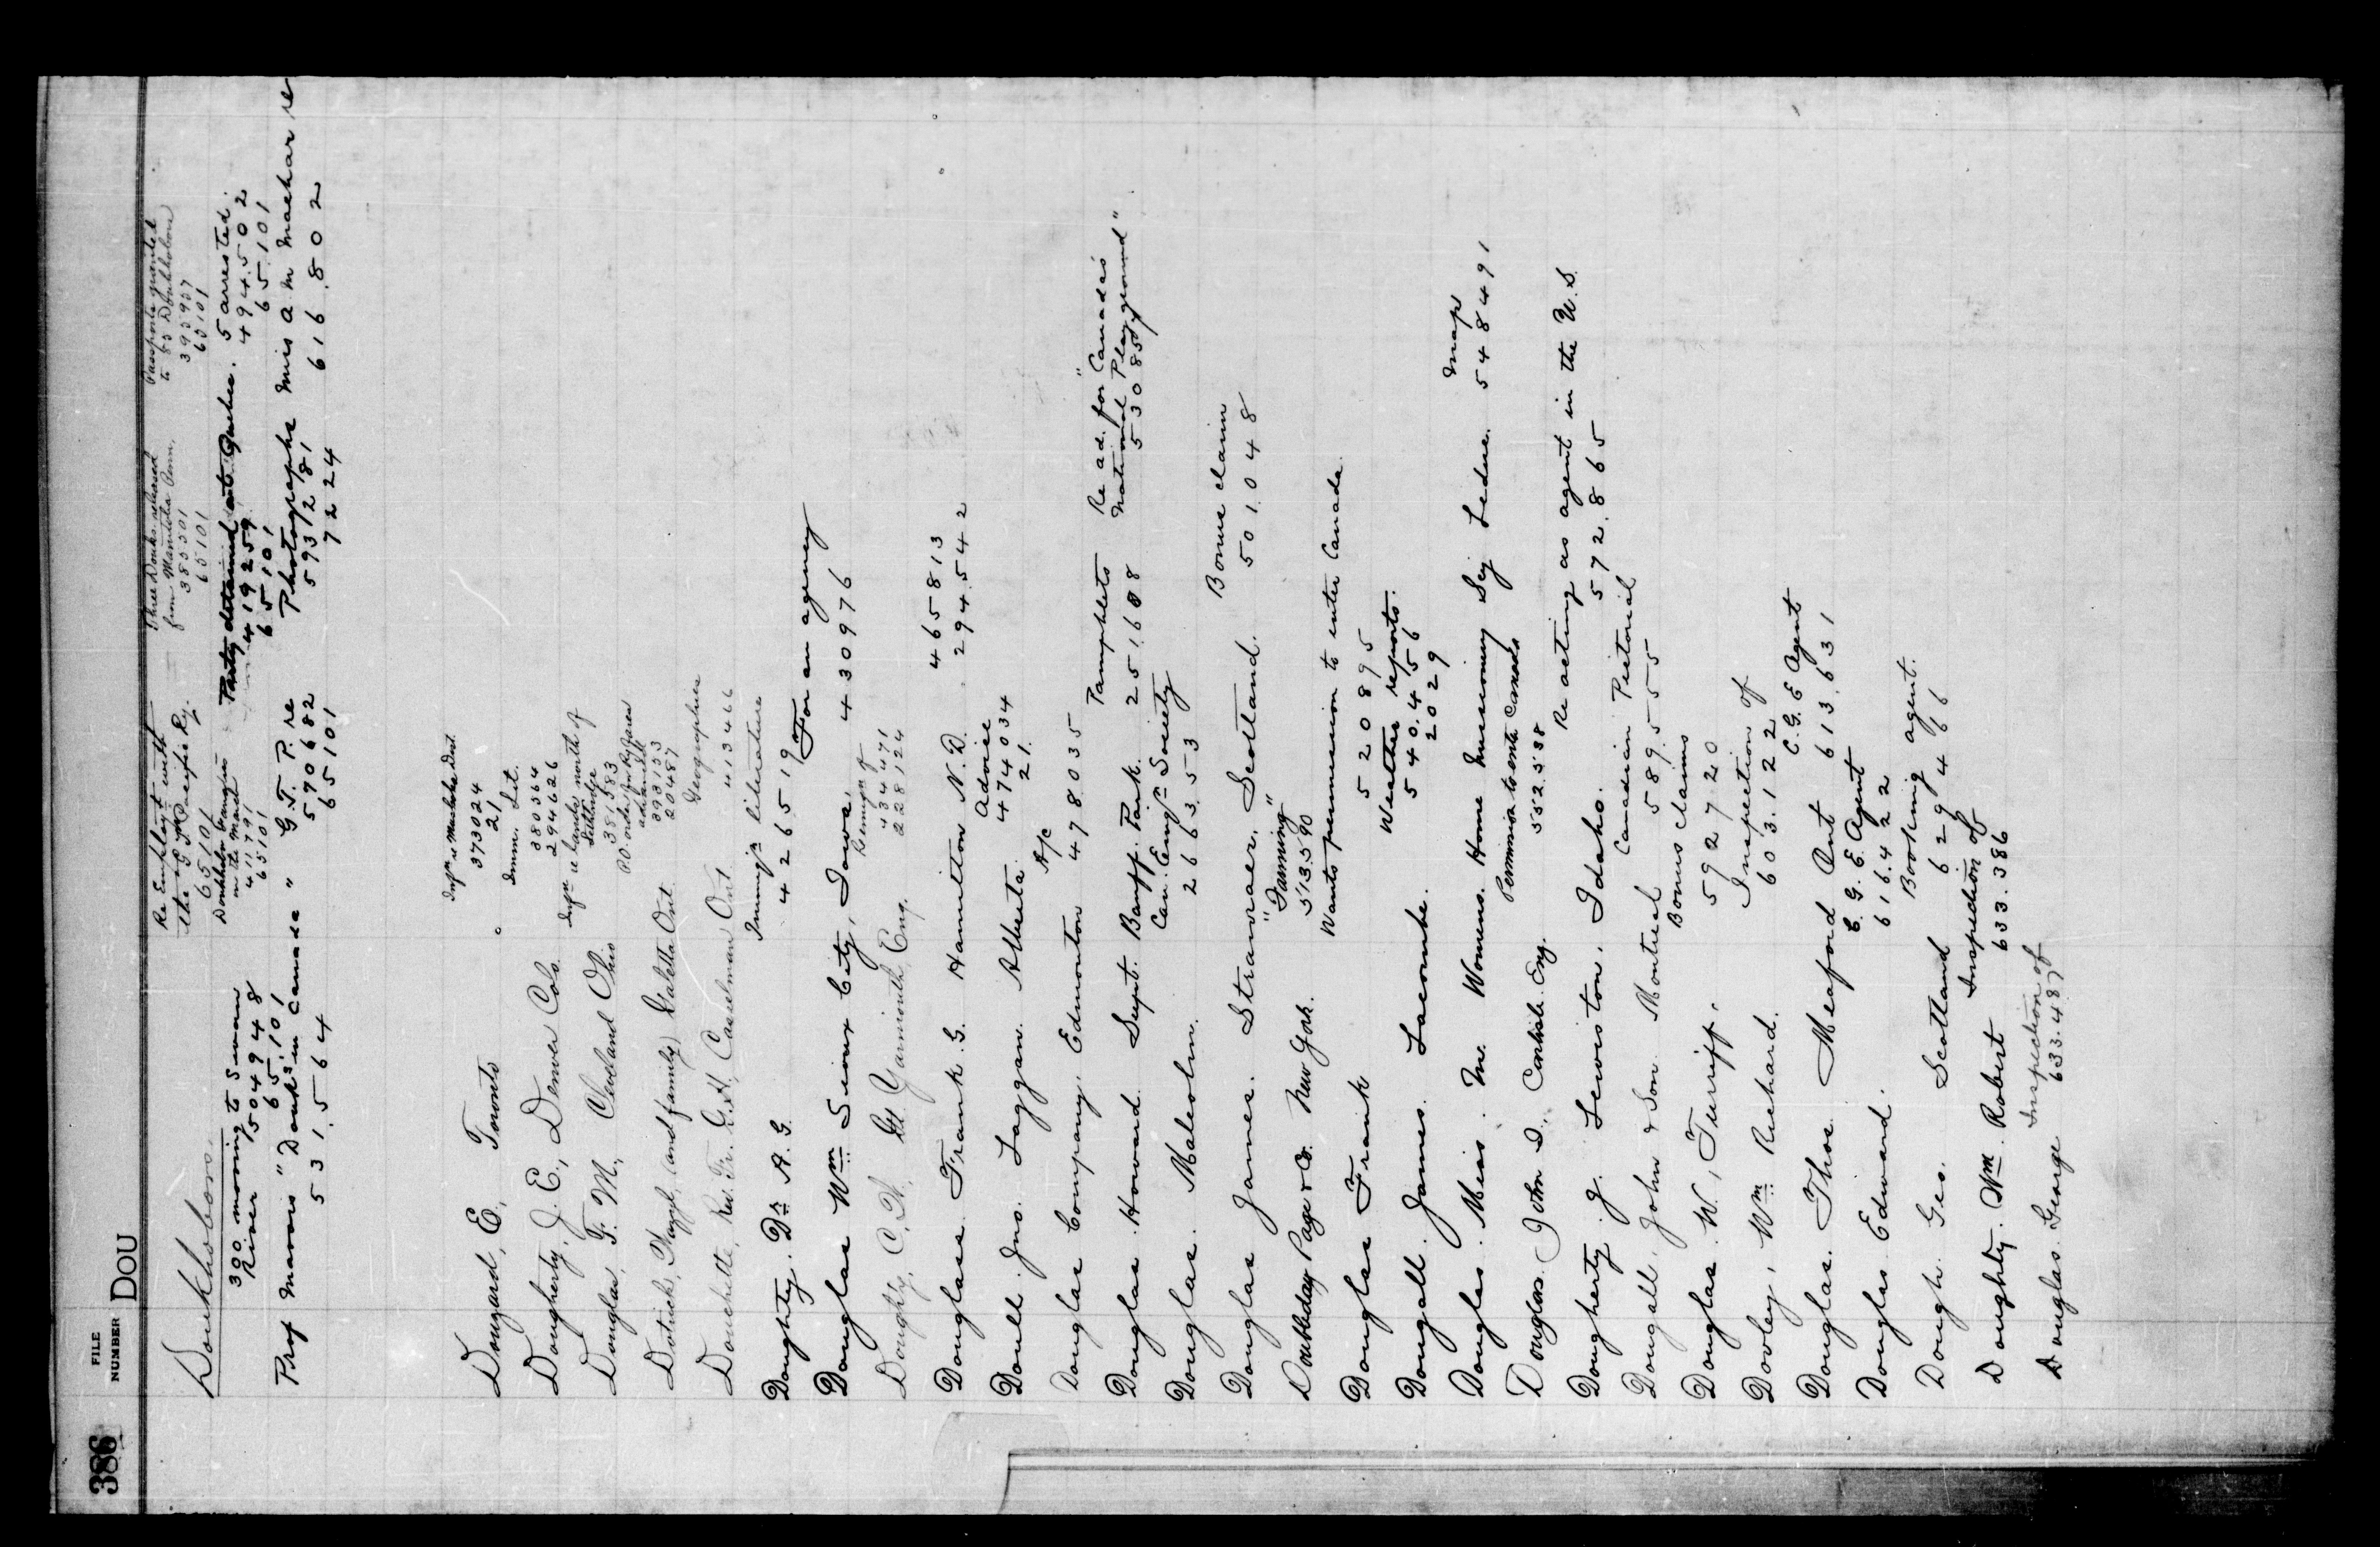 386
FILE NUMBER DOU
Doukhobors.
Re Employt with the G.T. Pacific Ry.
65101
Three Douks. released from Manitoba Penn.
385501
65101
Passports granted to 85 Doukhobors
393957
65101
300 moving to Swan River 150494 8
65101
Doukhobor
on the March
411791
65101
Party detained at Quebec.
419259
65101
5 arrested.
494502
65101
Prof Mavors "Douks" in Canada"
531.564
G.T.P. re
590682
65101
Photographs
593281
72224
Miss A M Machar re
616.802
Dougard, E, Toronto
Infn re Muskoka Dist.
373024
21
Dougherty, J. E., Denver Colo.
Imm. Lit.
380564
294626
Douglas, F. M., Cleveland Ohio
Infn re lands north of Lethbridge
381583
Dotrick, (and family) Galetta Ont.
P.O. order for Ry fares
393153
20487
Douchette, Rev. Fr. G. H, Casselman Ont.
Geographies
413466
Doughty. Dr. A. G.
Immign literature
426519
Douglas Wm Sioux City, Iowa.
For an agency
430976
Doughty, C, W, Gt Yarmouth, Eng.
434471
228124
Douglas. Frank G. Hamilton N.D.
465813
294.542
Doull. Jno. Laggan. Alberta.
Advice
474034
21.
Douglas Company, Edmonton
A/c
478035
Douglas. Howard. Supt. Banff. Park.
Pamphlets
251.688
Re ad. for "Canada's National Playground"
530857
Douglas. Malcolm.
Can. Engn Society
266353
Douglas James. Stranraer, Scotland.
Bonus claim
501048
Doubleday Page & Co. New York.
"Farming"
513.590
Douglas Frank
Wants permission to enter Canada.
520895
Dougall. James. Lacombe.
Weather reports.
540.456
2029
Douglas. Miss. M. Womens. Home Missionary Scy Leduc.
Map
548491
Douglass John S., Carlisle. Eng.
Permission to enter Canada
552.538
Dougherty. J. Lewiston. Idaho.
Re acting as agent in the U.S.
572.865
Dougall, John & Son. Montreal
Canadian Pictorial
589.555
Douglas. W., Turriff.
Bonus claims
592720
Dooley, Wm Richard.
Inspection of
603.122
Douglas. Thos. Meaford Ont
C.G.E Agent
613.631
Douglas. Edward.
C.G.E. Agent
616.422
Dough. Geo. Scotland
Booking agent.
629466
Doughty. Wm. Robert
Inspection of
633.386
Douglas. George
Inspection of
633.487